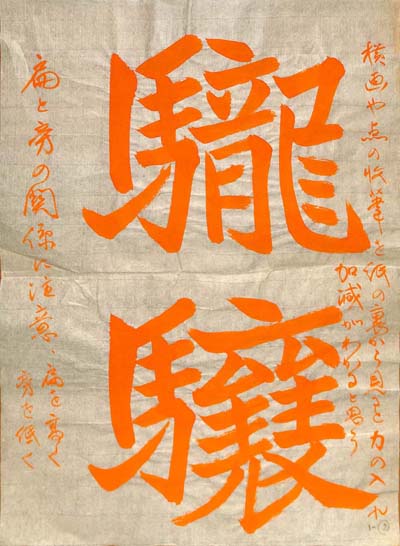 横画や点の収筆を紙の裏から見ると力の入れ
加減がわかると思う
䮾
驤
扁と旁の関係に注意、扁を高く
旁を低く